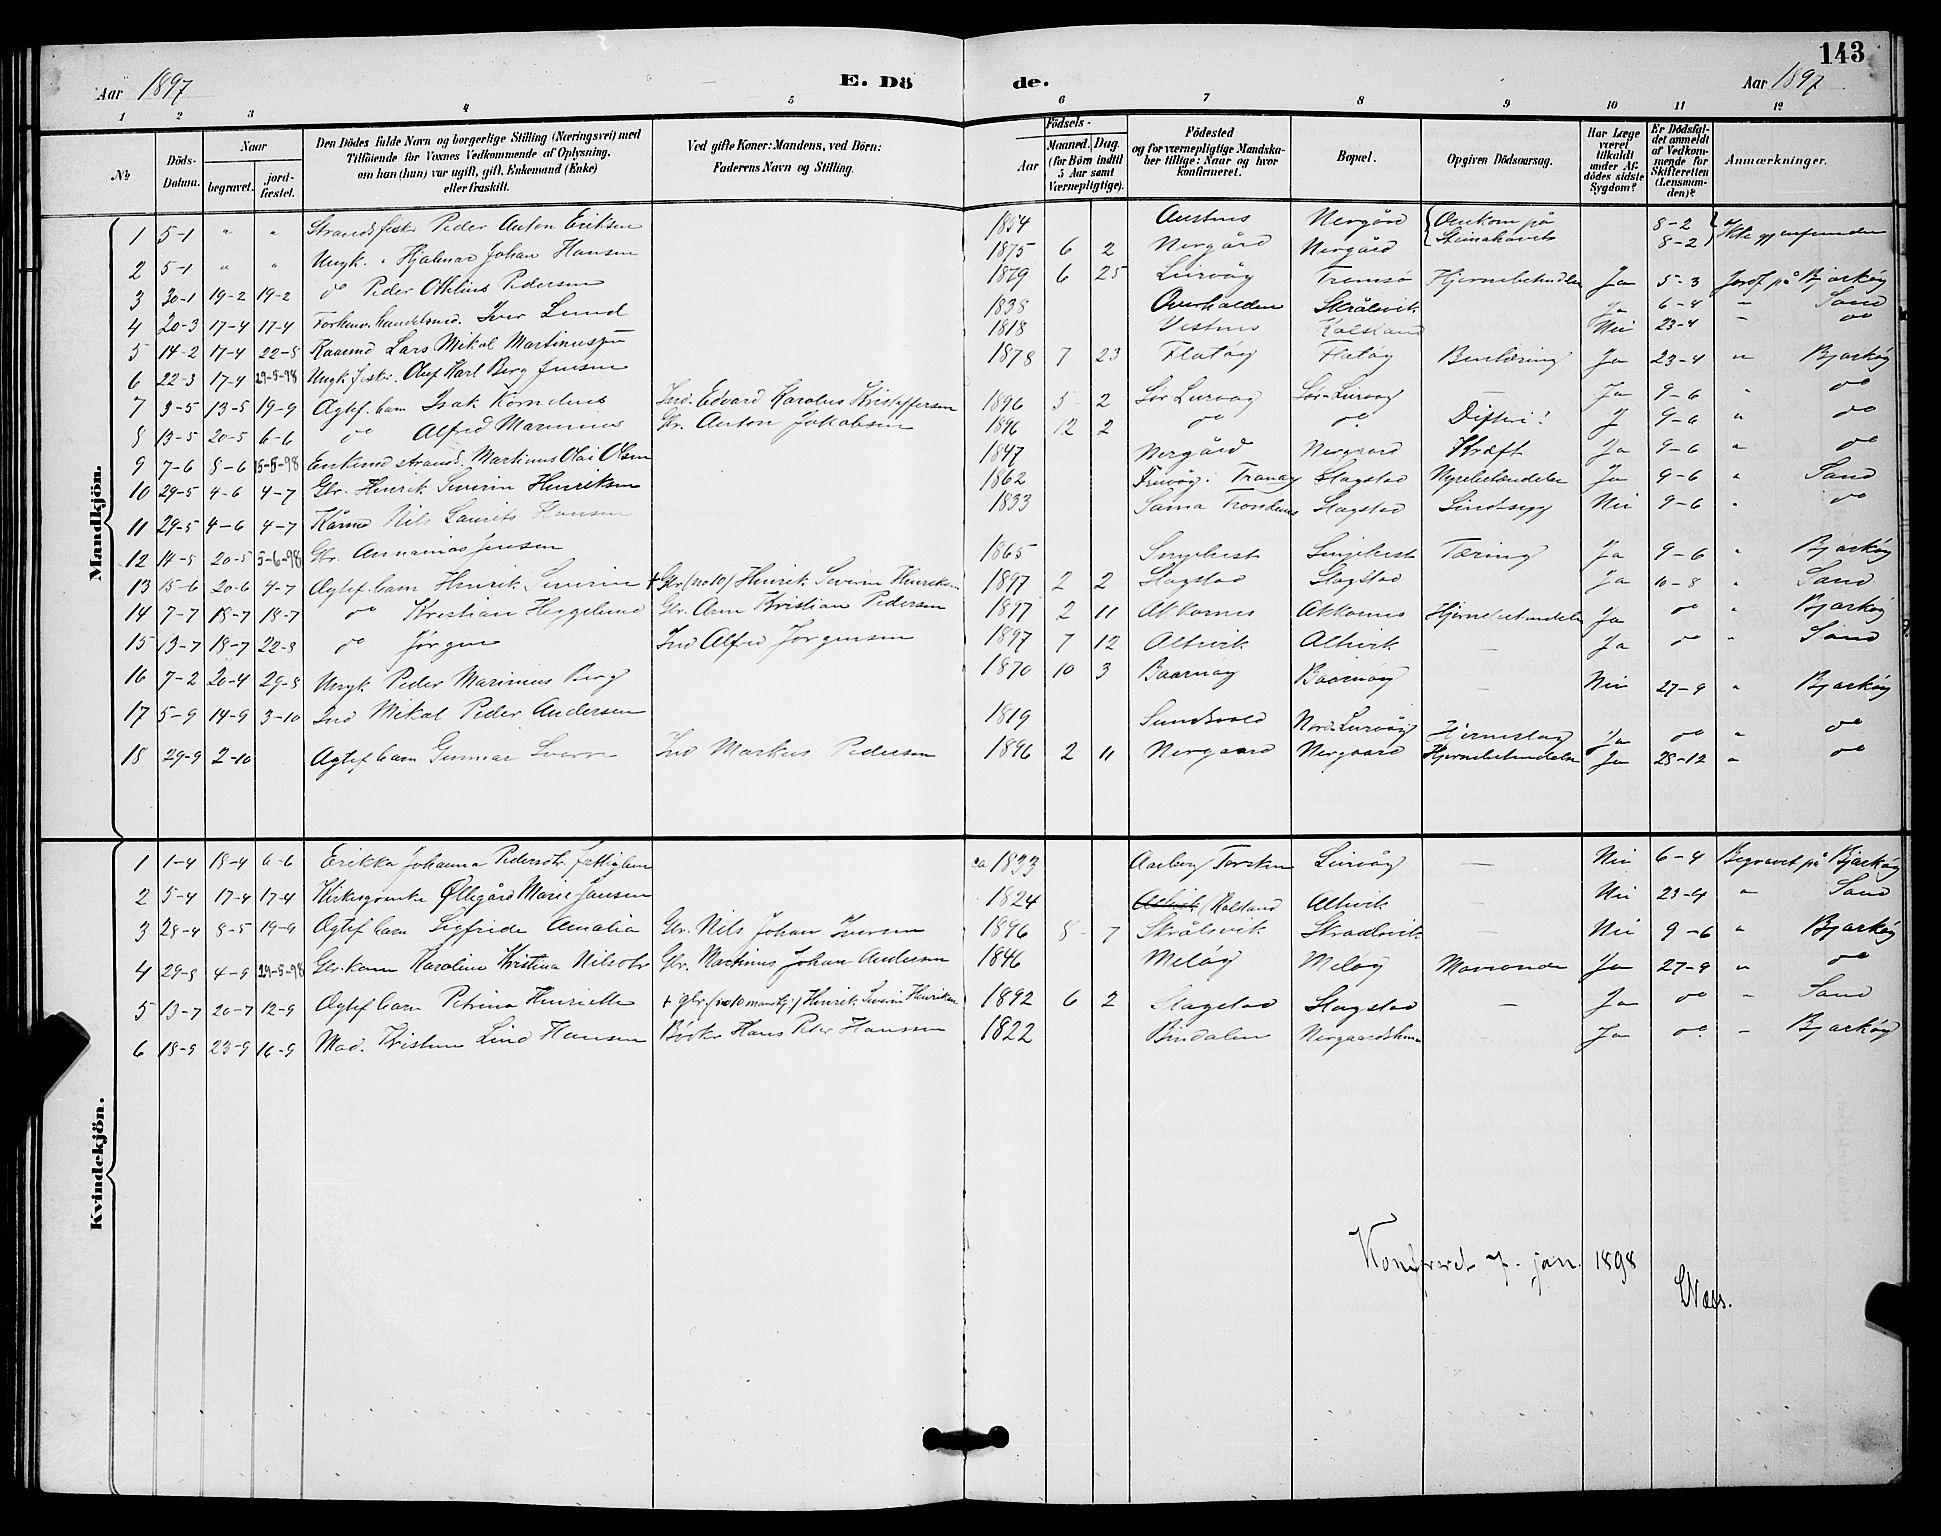 143
Aar 1897 E. Dö de. Aar 1897
1 2 3 4 5 6 7 8 9 10 11 12
№ Döds-Datum. Naar begravet. jord-fæstet. Den Dödes fulde Navn og borgerlige Stilling (Næringsvei) med Tilföiende for Voxnes Vedkommende af Oplysning, om han (hun) var ugift, gift, Enkemand (Enke) eller fraskilt. Ved gifte Koner: Mandens, ved Börn: Faderens Navn og Stilling. Födsels- Aar Maaned. Dag. (for Börn indtil 5 Aar samt Værnepligtige). Födested og for værnepligtige Mandskaber tillige: Naar og hvor konfirmeret. Bopæl. Opgiven Dödsaarsag. Har Læge været tilkaldt under Afdödes sidste Sygdom? Er Dödsfaldet anmeldt af Vedkommende for Skifteretten (Lensmanden)? Anmærkninger.
Mandkjön.
1 5-1 " " Strandsfisk Peder Anton Eriksen 1854 Austnes Nergård Omkom på 8-2 Ikke gjenfunden
2 5-1 " " Ungk. Hjalmar Johan Hansen 1875 6 2 Nergård Nergård 8-2
3 30-1 19-2 19-2 do Peder Othilius Pedersen 1879 6 25 Lurvåg Tromsø Hjernebetændelse Ja 5-3 Jordf på Bjarkøy
4 20-3 17-4 17-4 Forhenv. handelsmd. Iver Lund 1838 Overhalden Skrålsvik Ja 6-4 " Sand
5 14-2 17-4 22-8 Lars Mikal 1818 Vestnes Kalsland Nei 23-4 " do
6 22-3 17-4 29-5-98 Ungk. fisk. Oluf Karl Berg Jensen 1878 7 23 Flatøy Flatøy Ja 23-4 " Bjarkøy
7 3-5 13-5 19-9 Ægtef. barn Isak Kornelius Ind. Edvard Karolus Kristoffersen 1896 5 2 Sør Lurvåg Sør-Lurvåg Ja 9-6 " do
8 13-5 20-5 6-6 do Alfred Marinius Gbr. Anton Jakobsen 1896 12 2 do do Difteri? J 9-6 " do
9 7-6 8-6 15-5-98 Enkemd strands. Martinus Olai Olsen 1847 Nergård Nergaard Kræft Ja 9-6 " do
10 29-5 4-6 4-7 Gbr. Henrik Severin Henriksen 1862 Tranøy Slagstad Nyrebetændelse Ja 9-6 " Sand
11 29-5 4-6 4-7 Kårmd Nils Laurits Hansen 1833 Sama Trondenes Slagstad Sindssyg Nei 9-6 " do
12 14-5 20-5 5-6-98 Gbr. Annanias Jensen 1865 Tæring Ja 9-6 " Bjarkøy
13 15-6 20-6 4-7 Ægtef. barn Henrik Severin + Gbr (no 10) Henrik Severin Henriksen 1897 2 2 Slagstad Slagstad Ja 10-8 " Sand
14 7-7 18-7 18-7 do Kristian Hegelund Gbr. Arn Kristian Pedersen 1897 2 11 Akkarnes Akkarnes Hjernebetændelse Ja do " Bjarkøy
15 13-7 18-7 22-8 do Jørgen Ind Alfred Jørgensen 1897 7 12 Altevik Altevik — Ja do " Sand
16 7-2 20-4 29-8 Ungk. Peder Marinius Berg 1870 10 3 — Nei 27-9 " Bjarkøy
17 5-9 14-9 3-10 Ind Mikal Peder Andersen 1819 Nord-Lurvåg Hjerneslag Ja do " do
18 29-9 2-10 Ægtef. barn Gunnar Sverre Ind Markus Pedersen 1896 2 11 Nergaard Nergaard Hjernebetændelse Ja 28-12 " do
Kvindekjön.
1 1-4 18-4 6-6 Erikka Johanna Pedersdtr. fattiglem ca 1833 Torsken Lurvåg — Nei 6-4 Begravet på Bjarkøy
2 5-4 17-4 17-4 Øllegård Marie Jansen 1824 Altevik (Kalsland Altevik Nei 23-4 " Sand
3 28-4 8-5 19-9 Ægtef. barn Sigfride Amalia Gbr. Nils Johan Iversen 1896 8 7 Skrålsvik Skraalsvik — Nei 9-6 " Bjarkøy
4 29-8 4-9 29-5-98 Gbr. kone Karoline Kristina Nilsdtr Gbr. Martinus Johan Andersen 1846 Meløy Meløy Ja 27-9 " do
5 13-7 20-7 12-9 Ægtef. barn Petrina Henriette + gbr (no 10 mandkj.) Henrik Severin Henriksen 1892 6 2 Slagstad Slagstad — Ja do " Sand
6 18-9 23-9 16-9 Mad. Kristine Lind Hansen Bødker Hans Peter Hansen 1822 Bindalen Ja do " Bjarkøy
Konfereret 7. jan. 1898